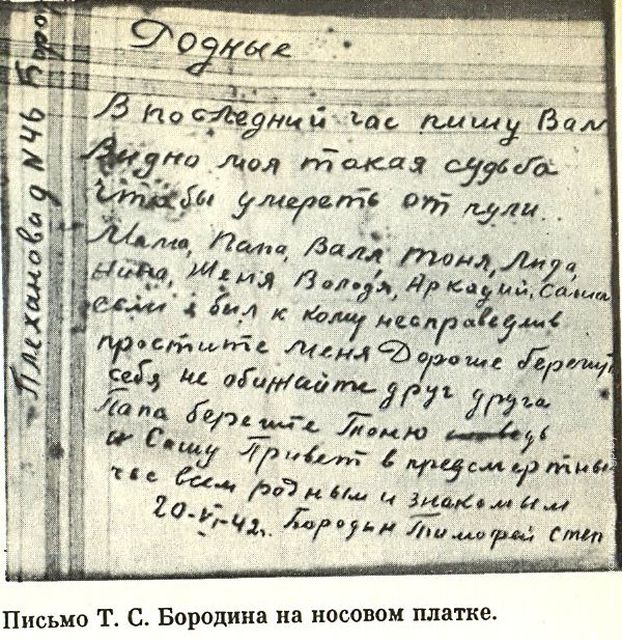 Плеханова д N 46 Боро
Родные
В последний час пишу Вам
Видно моя такая судьба
чтобы умереть от пули..
Мама, Папа, Валя Тоня, Лида,
Нина, Женя Володя, Аркадий, Саша
если я был к кому несправедлив
простите меня Дорогие берегите
себя не обижайте друг друга
Папа берегите Тоню
и Сашу Привет в предсмертный
час всем родным и знакомым
20-VI-42г. Бородин Тимофей Степ
Письмо Т. С. Бородина на носовом платке.